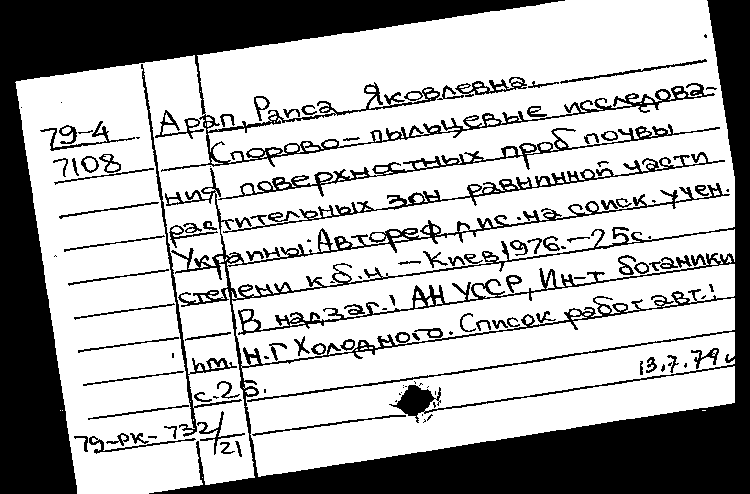 79-4
7108
Арап, Раиса Яковлевна.
Спорово-пыльцевые исследова-
ния поверхностных проб почвы
растительных зон равнинной части
Украины: Автореф. дис. на соиск. учен.
степени к.б.н. — Киев, 1976. — 25с.
В надзаг.: АН УССР, Ин-т ботаники
им. Н.Г. Холодного. Список работ авт.:
с.25.
13.7.79
79-РК-732/21